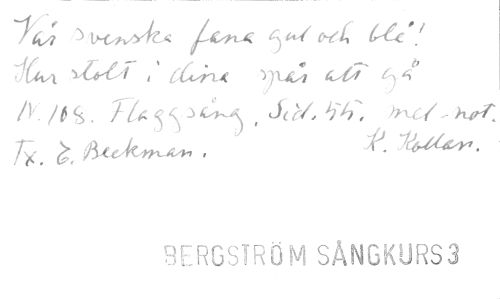 Vår svenska fana gul och blå!
Hur stolt i dina spår att gå
N. 108. Flaggsång. Sid. 55. mel-not.
Tx. E. Beckman. K. Kollan.
BERGSTRÖM SÅNGKURS 3